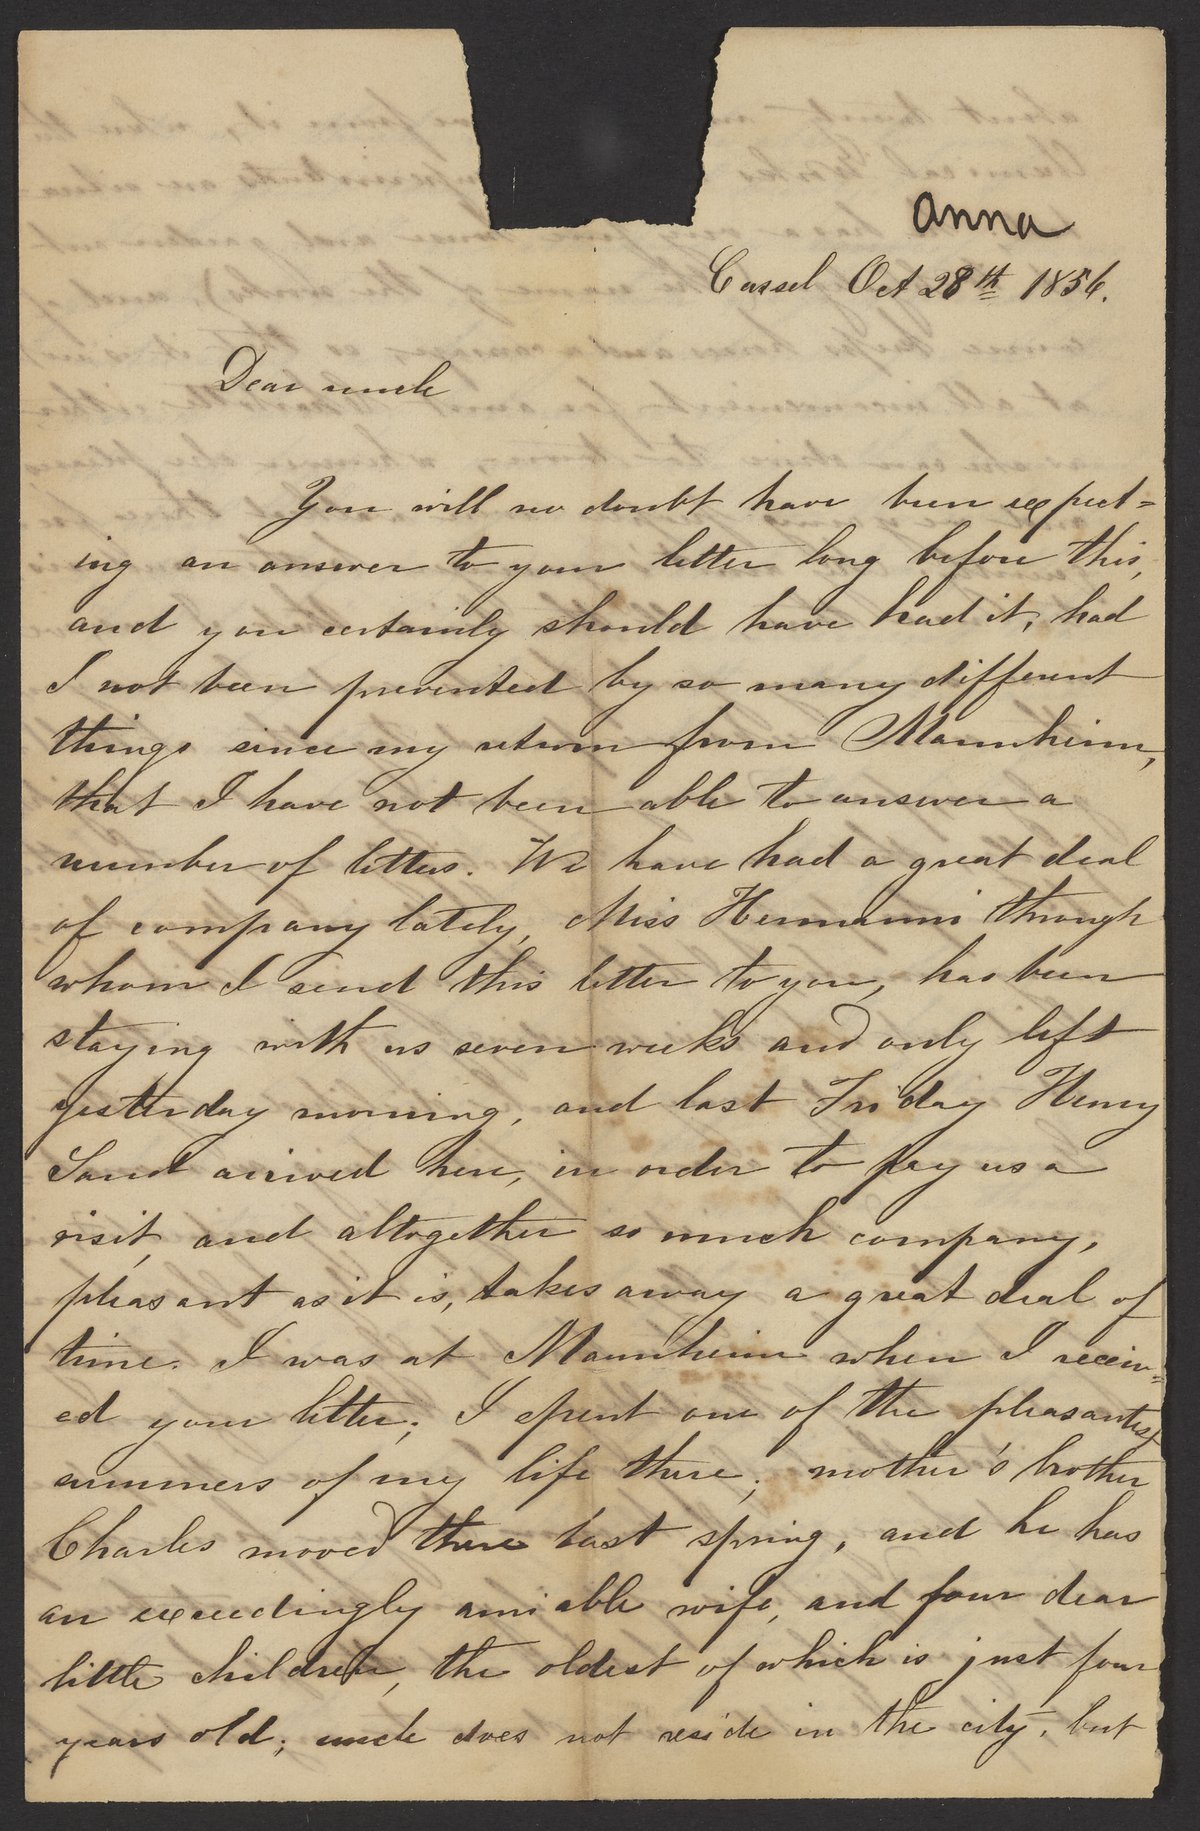 anna
Cassel Oct 28th 1856.
Dear uncle
You will no doubt have been expect=
ing an answer to your letter long before this,
and you certainly should have had it, had
I not been prevented by so many different
things since my return from Mannheim,
that I have not been able to answer a
number of letters. We have had a great deal
of company lately, Miss Hermanni through
whom I send this letter to you, has been
staying with us seven weeks and only left
yesterday morning, and last Friday Henry
Sand arrived here, in order to pay us a
visit, and altogether so much company,
pleasant as it is, takes away a great deal of
time. I was at Mannheim when I receiv=
ed your letter; I spent one of the pleasantest
summers of my life there; mother's brother
Charles moved there last spring, and he has
an exceedingly amiable wife, and four dear
little children, the oldest of which is just four
years old; uncle does not reside in the city, but